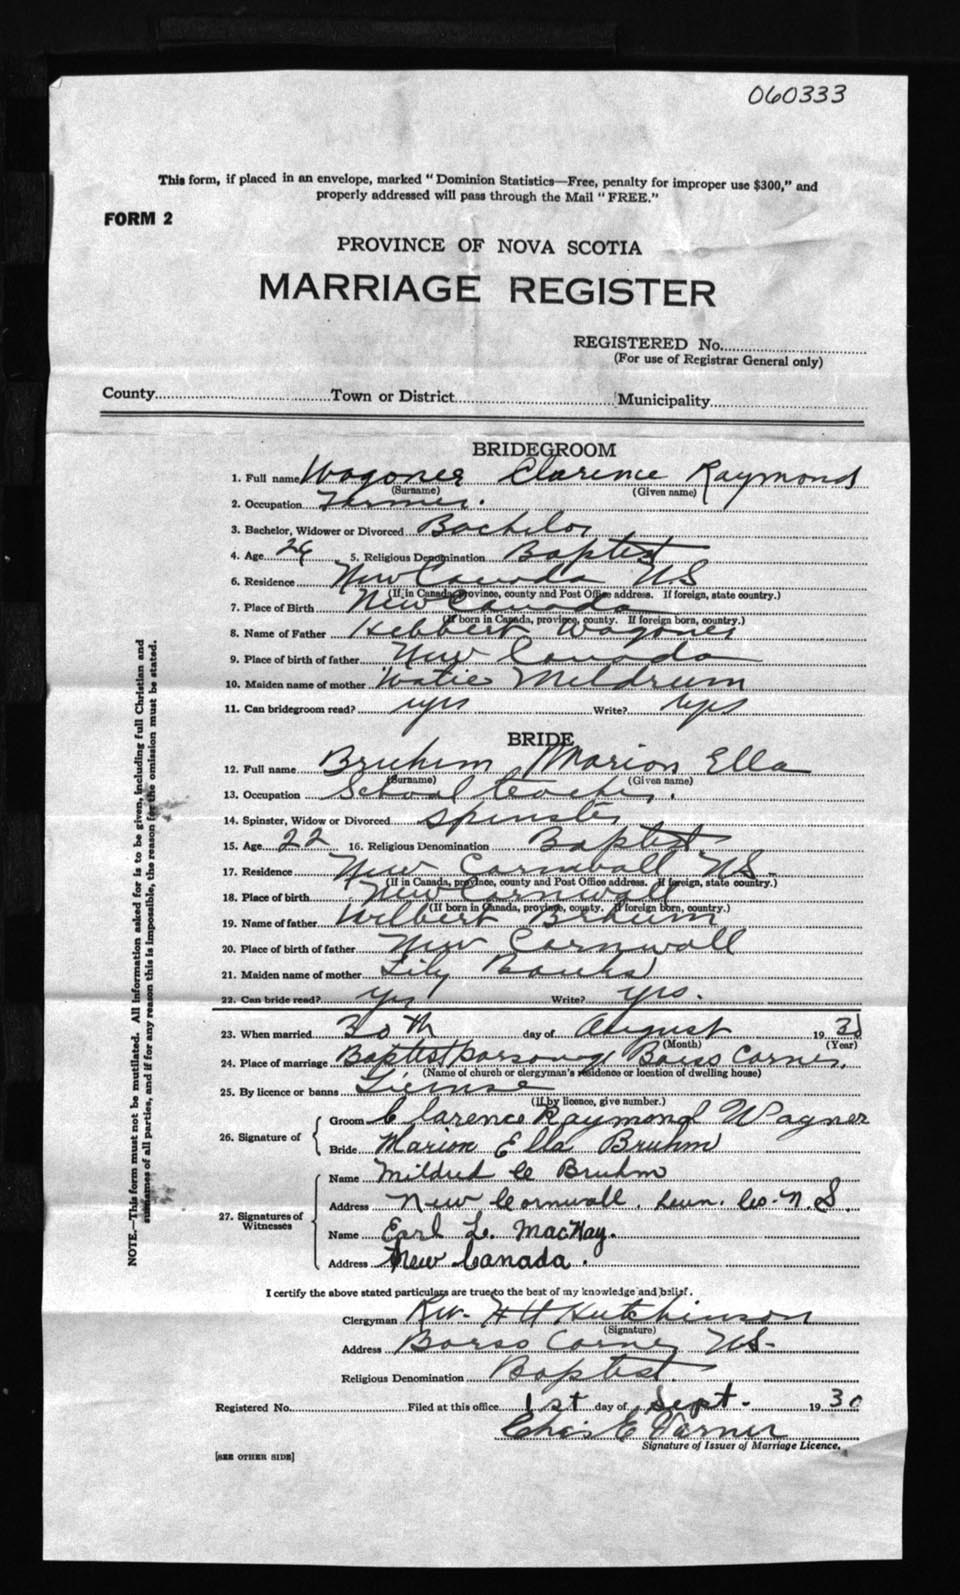 060333
This form, if placed in an envelope, marked "Dominion Statistics—Free, penalty for improper use $300," and
properly addressed will pass through the Mail "FREE."
FORM 2
PROVINCE OF NOVA SCOTIA
MARRIAGE REGISTER
REGISTERED No.
(For use of Registrar General only)
County Town or District Municipality
BRIDEGROOM
1. Full name Wagoner Clarence Raymond
(Surname) (Given name)
2. Occupation Farmer.
3. Bachelor, Widower or Divorced Bachelor
4. Age 5. Religious Denomination Baptist
6. Residence New Canada NS
(If in Canada, province, county and Post Office address. If foreign, state country.)
7. Place of Birth New Canada
(If born in Canada, province, county. If foreign born, country.)
8. Name of Father Hebbert Wagoner
9. Place of birth of father New Canada
10. Maiden name of mother Mildrum
11. Can bridegroom read? yes Write? yes
BRIDE
12. Full name Bruhm Marion Ella
(Surname) (Given name)
13. Occupation School teacher.
14. Spinster, Widow or Divorced Spinster
15. Age 22 16. Religious Denomination Baptist
17. Residence New Cornwall NS.
(If in Canada, province, county and Post Office address. If foreign, state country.)
18. Place of birth New Cornwall
(If born in Canada, province, county. If foreign born, country.)
19. Name of father Wilbert Bruhm
20. Place of birth of father New Cornwall
21. Maiden name of mother Lily Banks
22. Can bride read? yes Write? yes.
23. When married 30th day of August 1930
(Month) (Year)
24. Place of marriage Baptist parsonage Barss Corner.
(Name of church or clergyman's residence or location of dwelling house)
25. By licence or banns License
(If by licence, give number.)
26. Signature of
Groom Clarence Raymond Wagner
Bride Marion Ella Bruhm
27. Signatures of Witnesses
Name Mildred C Bruhm
Address New Cornwall. Lun. Co. N.S.
Name Earl L. MacKay.
Address New Canada.
I certify the above stated particulars are true to the best of my knowledge and belief.
Clergyman Rev. H H Hutchinson
(Signature)
Address Barss Corner NS.
Religious Denomination Baptist.
Registered No. Filed at this office 1st day of Sept. 1930
Chas E
Signature of Issuer of Marriage Licence.
[SEE OTHER SIDE]
NOTE.—This form must not be mutilated. All information asked for is to be given, including full Christian and
surnames of all parties, and if for any reason this is impossible, the reason for the omission must be stated.